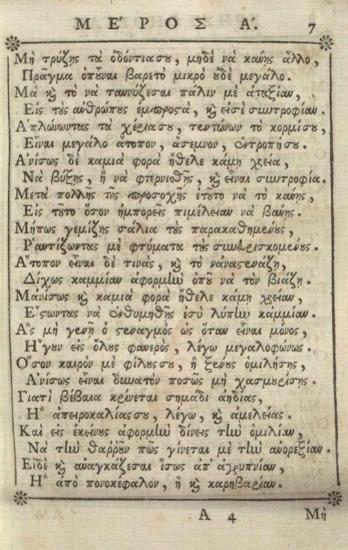 ΜΕ'ΡΟΣ Α'. 7
Μὴ τρύζῃς τὰ ὀδόντιασου, μηδὲ νὰ κάνῃς ἄλλο,
Πρᾶγμα ὁποῦναι βαρετὸ μικρὸ ἠδὲ μεγάλο.
Μὰ καὶ τὸ νὰ ταννύζεσαι πάλιν μὲ ἀταξίαν,
Εἰς τοὺς ἀνθρώπους ἐμπροστὰ, καὶ εἰς συντροφίαν.
Α'πλώνωντας τὰ χέριασου, τεντώνων τὸ κορμίσου,
Εἶναι μεγάλο ἄτοπον, ἄσεμνον, ἐντροπήσου.
Α'νίσως δὲ καμιὰ φορὰ ἤθελε κάμῃ χρεία,
Νὰ βύζῃς, ἢ νὰ φτερνισθῇς, καὶ εἶναι συντροφία.
Μετὰ πολλῆς τῆς προσοχῆς ἐτοῦτο νὰ τὸ κάνῃς,
Εἰς τοῦτο ὅσον ἠμπορεῖς πιμέλειαν νὰ βάνῃς.
Μήπως γεμίζῃς σάλια τοὺς παρακαθημένους,
Ραντίζωντας μὲ φτύματα τοὺς συνευρισκομένους.
Α'τοπον εἶναι δὲ τινὰς, καὶ τὸ νἀναστενάζῃ,
Δίχως καμμίαν ἀφορμὴν ὁποῦ νὰ τὸν βιάζῃ.
Μἀνίσως καὶ καμιὰ φορὰ ἤθελε κάμῃ χρείαν,
Ε'ξωντας νὰ ἐνθυμηθῇς ἐσὺ λύπην καμμίαν.
Α'ς μὴ γενῇ ὁ στεναγμὸς ὡς ὅταν εἶσαι μόνος,
Η'γουν εἰς ὅλους φανερὸς, λέγω μεγαλοφώνως.
Ο'σον καιρὸν μὲ φίλουσσου, ἢ ξένους ὁμιλήσῃς,
Α'νίσως εἶναι δυνατὸν ποσῶς μὴ χασμουρίσῃς.
Γιατὶ βέβαια κρίνεται σημάδι ἀηδίας,
Η' ἀπειροκαλίασσου, λέγω, καὶ ἀμελείας.
Καὶ εἰς ἐκείνους ἀφορμὴν δίνεις τὴν ὁμιλίαν,
Νὰ τὴν θαρροῦν πῶς γίνεται μὲ τὴν ἀνορεξίαν.
Εἰδὲ καὶ ἀναγκάζεσαι ἴσως ἀπ' ἀγρυπνίαν,
Η' ἀπὸ πονοκέφαλον, ἢ καὶ καρηβαρίαν.
Α 4 Μὴ